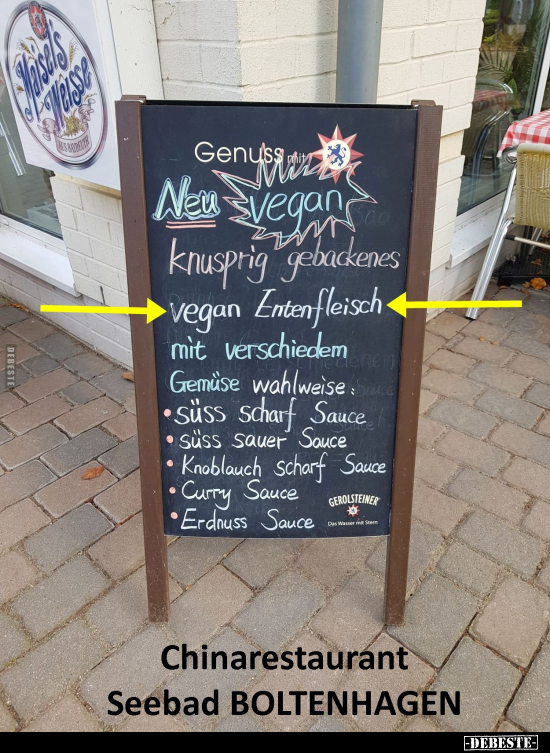 Maisel's
Weisse
Genuss mit
Neu vegan
knusprig gebackenes
vegan Entenfleisch
mit verschiedem
Gemüse wahlweise:
• süss scharf Sauce
• süss sauer Sauce
• Knoblauch scharf Sauce
• Curry Sauce
• Erdnuss Sauce
GEROLSTEINER
Das Wasser mit Stern
DEBESTE
Chinarestaurant
Seebad BOLTENHAGEN
-DEBESTE-